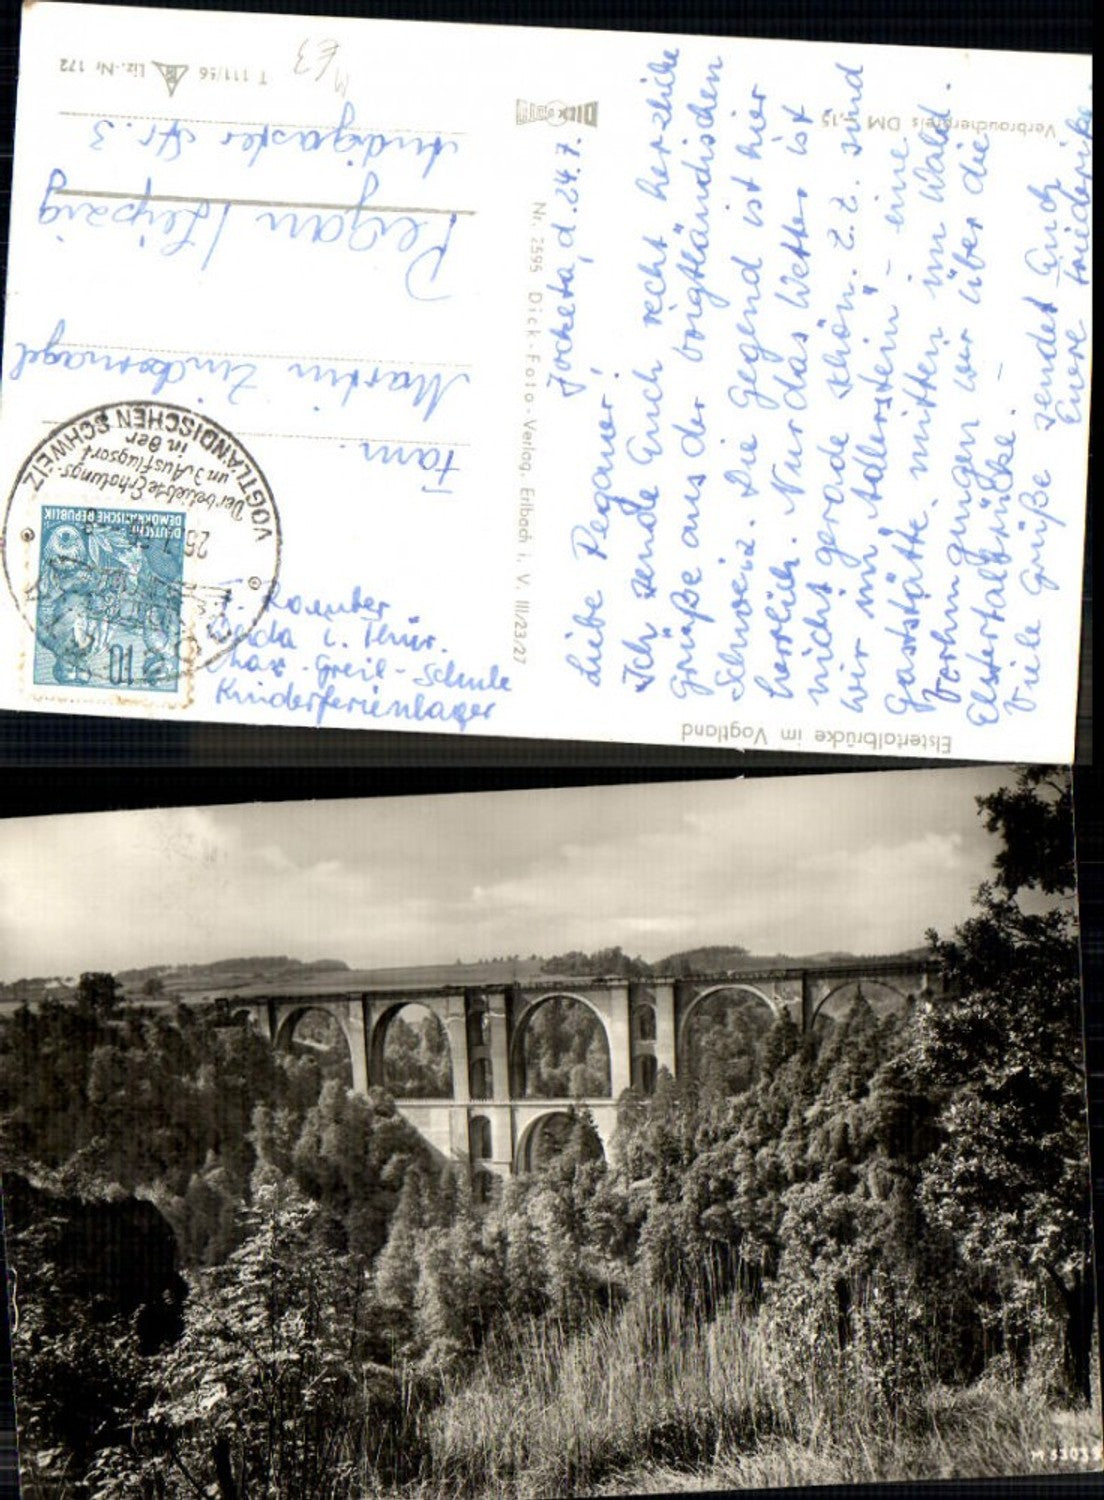 Jocketa, d. 24.7.
Liebe Pegauer,
Ich sende Euch recht herzliche
Grüße aus der vogtländischen
Schweiz. Die Gegend ist hier
herrlich. Nur das Wetter ist
nicht gerade schön. Z. Z. sind
wir im "Adlerstein" - eine
Gaststätte mitten im Wald.
Vorhin gingen wir über die
Elstertalbrücke. -
Viele Grüße sendet Euch
Eure Friederike.
Fam.
Martin Zinkernagel
Pegau / Leipzig
Audigaster Str. 3
Weida i. Thür.
Max-Greil-Schule
Kinderferienlager
Elstertalbrücke im Vogtland
Nr. 2595 Dick-Foto-Verlag, Erlbach i. V. III/23/27
DICK FOTO
Verbraucherpreis DM
T 111/56 Liz.-Nr 172
DEUTSCHE
DEMOKRATISCHE REPUBLIK
10
VOGTLÄNDISCHEN SCHWEIZ
Der beliebte Erholungs-
und Ausflugsort
in der
M 53035